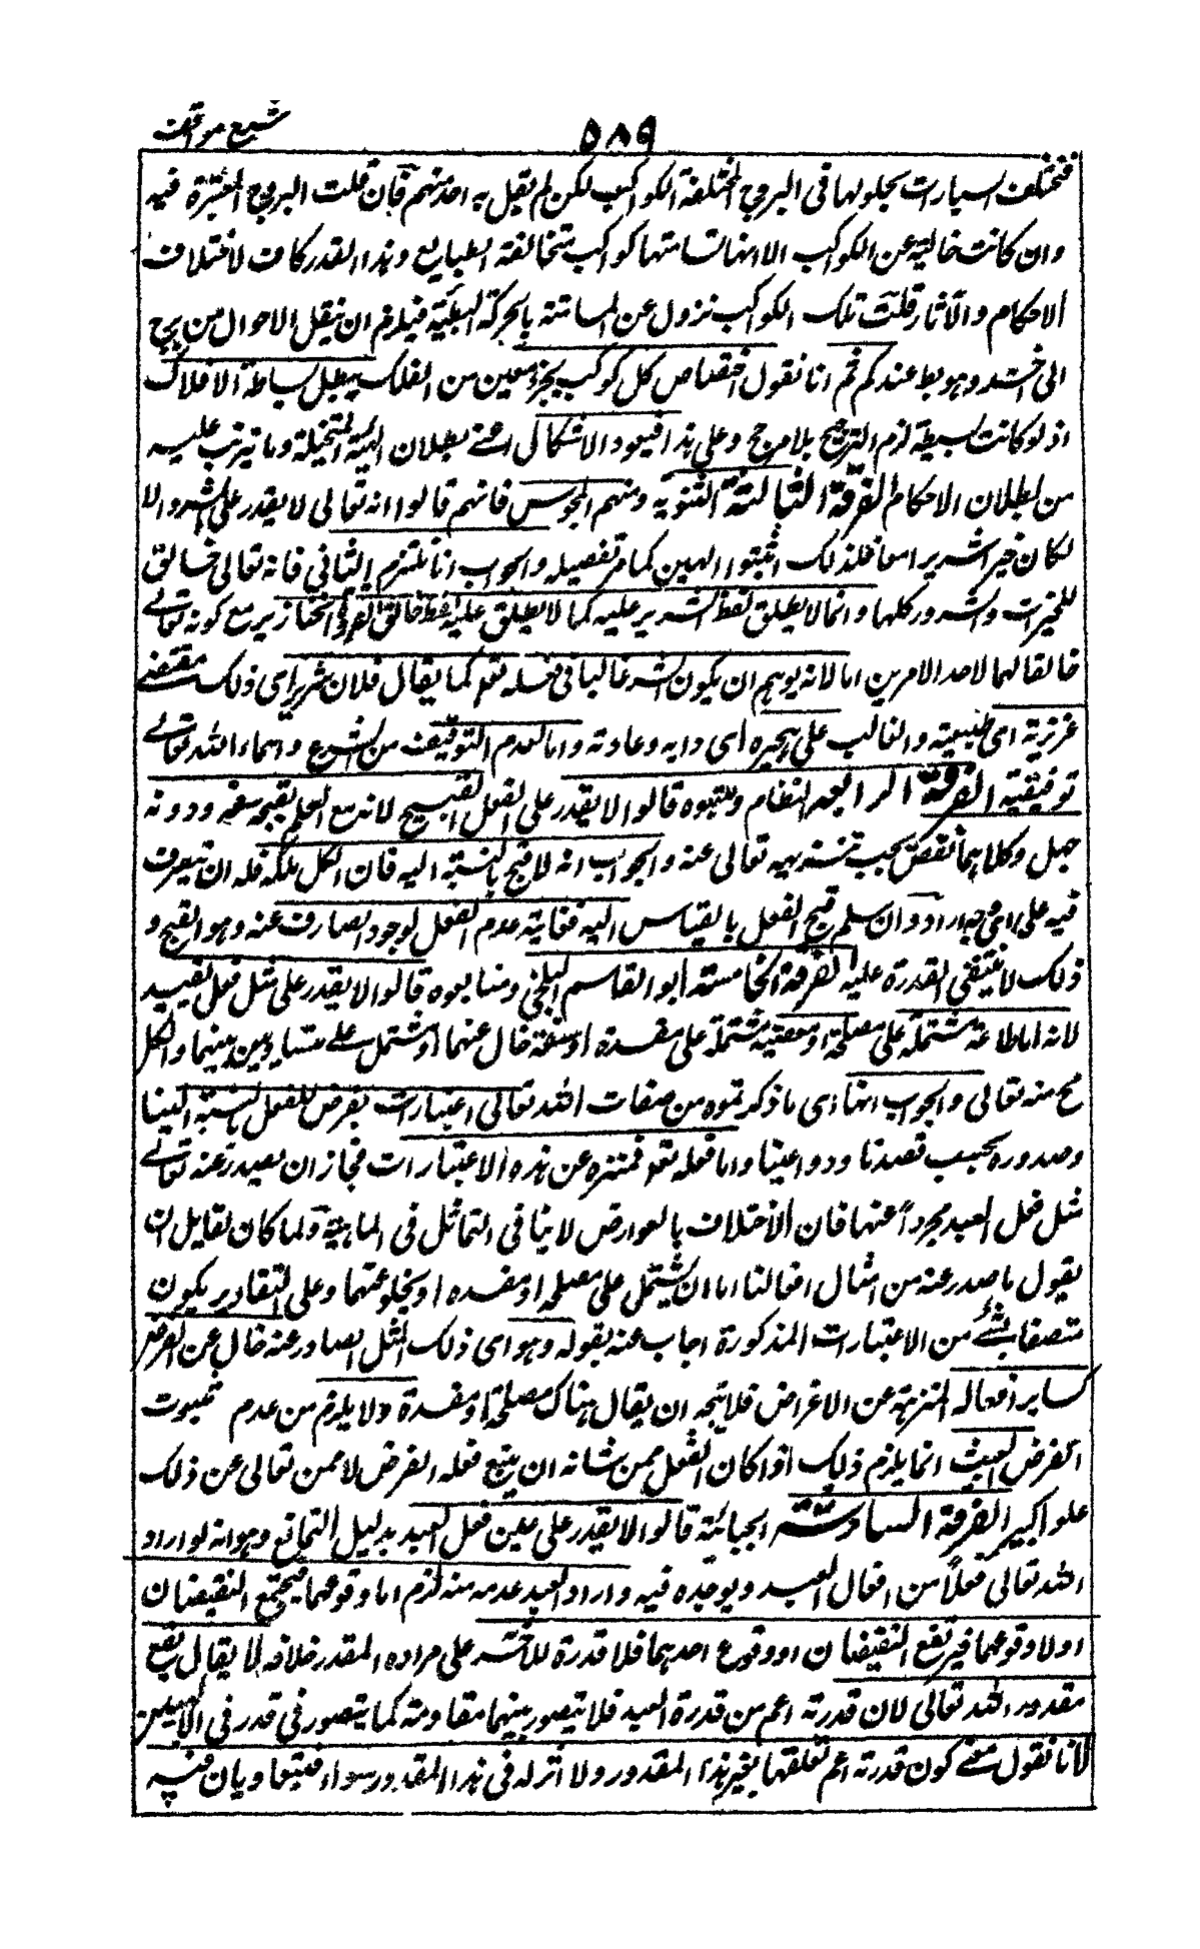 شرح مواقف
٥٨٩
فتختلف السيارات بحلولها فى البروج المختلفة الكواكب لكن لم يقل به احد منهم فان قلت البروج المعتبرة فيه
وان كانت خالية عن الكواكب الا انها تسامتها كواكب متخالفة الطبايع وهذا القدر كاف لاختلاف
الاحكام والآثار قلت تلك الكواكب تزول عن المسامتة بالحركة البطيئة فيلزم ان ينتقل الاحوال من برج
الى آخر وهو باطل عندكم ثم انا نقول اختصاص كل كوكب بجزء معين من الفلك يبطل بساطة الافلاك
اذ لو كانت بسيطة لزم الترجيح بلا مرجح وعلى هذا فيعود الاشكال اعنى بطلان الهيئة المتخيلة وما يترتب عليه
من بطلان الاحكام الفرقة الثالثة الثنوية ومنهم المجوس فانهم قالوا انه تعالى لا يقدر على الشر والا
لكان خيرا شريرا معا فلذلك اثبتوا الهين كما مر تفصيله والجواب انا نلتزم التالى فانه تعالى خالق
للخيرات والشرور كلها وانما لا يطلق لفظ الشرير عليه كما لا يطلق عليه لفظ خالق القردة والخنازير مع كونه تعالى
خالقا لهما لاحد الامرين اما لانه يوهم ان يكون الشر غالبا فى فعله تعم كما يقال فلان شرير اى ذلك مقتضى
غريزته اى طبيعته والغالب على هجيره اى دابه وعادته واما لعدم التوقيف من الشرع واسماء الله تعالى
توقيفية الفرقة الرابعة النظام ومتبعوه قالوا لا يقدر على الفعل القبيح لانه مع العلم بقبحه سفه ودونه
جهل وكلاهما نقص يجب تنزيهه تعالى عنه والجواب انه لا قبح بالنسبة اليه فان الكل ملكه فله ان يتصرف
فيه على اى وجه اراد وان سلم قبح الفعل بالقياس اليه فغايته عدم الفعل لوجود الصارف عنه وهو القبح و
ذلك لا ينفى القدرة عليه الفرقة الخامسة ابو القاسم البلخى ومتابعوه قالوا لا يقدر على مثل فعل العبد
لانه اما طاعة مشتملة على مصلحة او معصية مشتملة على مفسدة او سفه خال عنهما او مشتمل على متساويين منهما والكل
مح منه تعالى والجواب انها اى ما ذكرتموه من صفات الله تعالى اعتبارات تعرض للفعل بالنسبة الينا
وصدوره بحسب قصدنا ودواعينا واما فعله تعم فمنزه عن هذه الاعتبارات فجاز ان يصدر عنه تعالى
مثل فعل العبد مجردا عنها فان الاختلاف بالعوارض لا ينافى التماثل فى الماهية ولما كان لقايل ان
يقول ما صدر عنه من امثال افعالنا اما ان يشتمل على مصلحة او مفسده او يخلو عنهما وعلى التقادير يكون
متصفا بشئ من الاعتبارات المذكورة اجاب عنه بقوله وهو اى ذلك المثل الصادر عنه خال عن الغرض
كساير افعاله المنزهة عن الاغراض فلا يتجه ان يقال هناك مصلحة او مفسدة ولا يلزم من عدم ثبوت
الغرض العبث انما يلزم ذلك اذا كان الفعل ممن شانه ان يتبع فعله الغرض لا ممن تعالى عن ذلك
علوا كبيرا الفرقة السادسة الجبائية قالوا لا يقدر على عين فعل العبد بدليل التمانع وهو انه لو اراد
الله تعالى فعلا من افعال العبد ويوجده فيه واراد العبد عدمه منه لزم اما وقوعهما فيجتمع النقيضان
اولا وقوعهما فيرتفع النقيضان او وقوع احدهما فلا قدرة للآخر على مراده المقدر خلافه لا يقال يقع
مقدور الله تعالى لان قدرته اعم من قدرة العبد فلا يتصور بينهما مقاومة كما يتصور فى قدر فى الالهين
لانا نقول معنى كون قدرته اعم تعلقها بغير هذا المقدور ولا اثر له فى هذا المقدور سواء فيتقاويان فيه